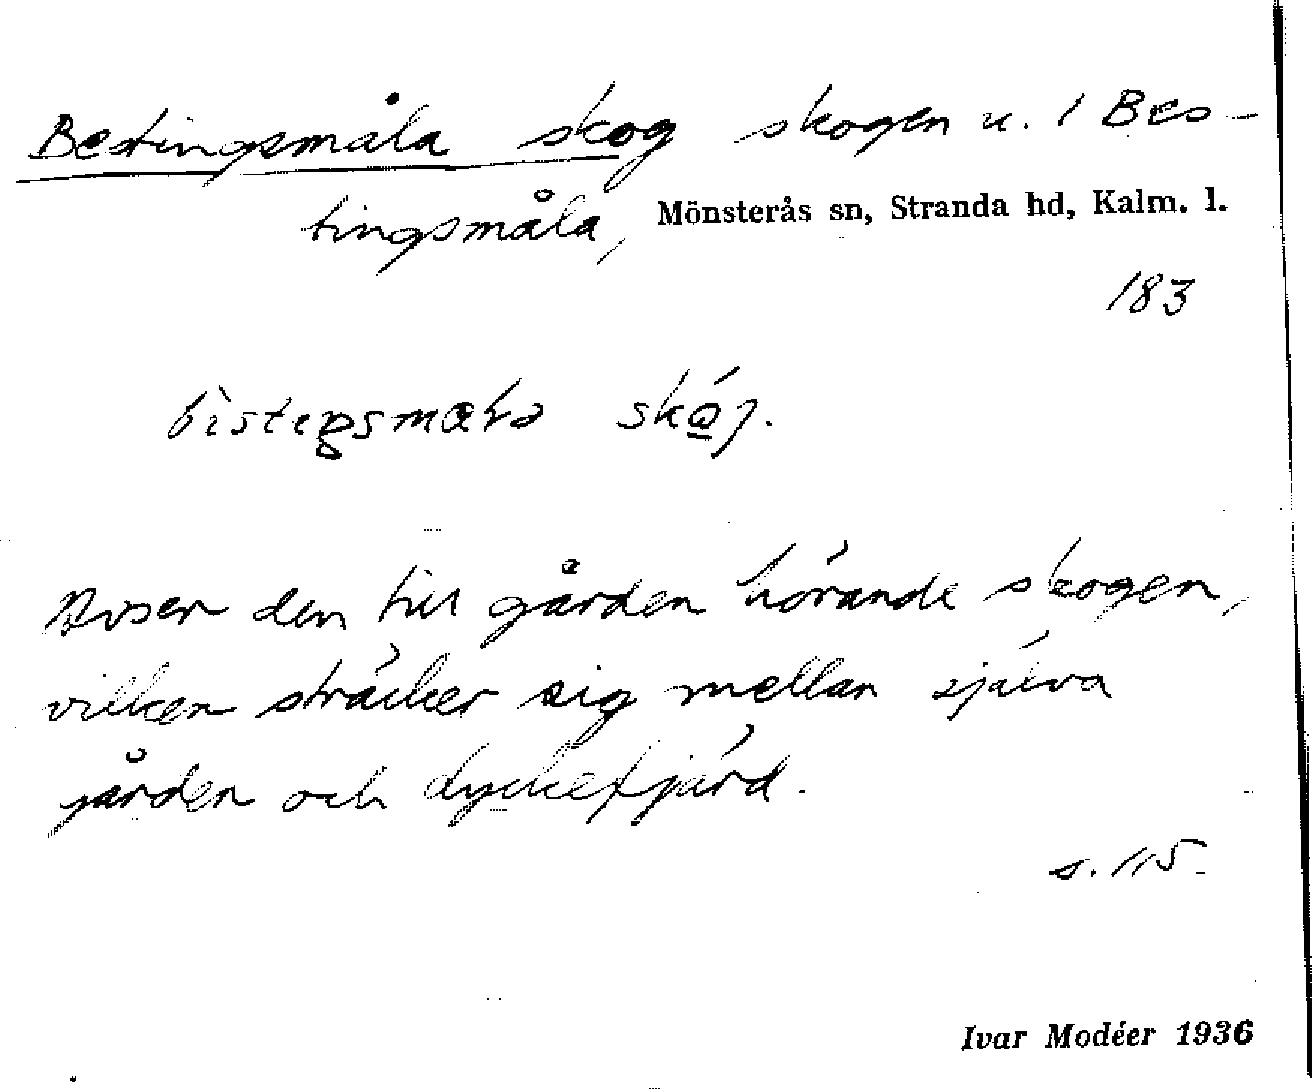 Bestingsmåla skog skogen u. 1 Bes-
tingsmåla, Mönsterås sn, Stranda hd, Kalm. l.
183
skó̱ʒ.
Avser den till gården hörande skogen,
vilken sträcker sig mellan själva
gården och dyckefjärd.
s. 115.
Ivar Modéer 1936